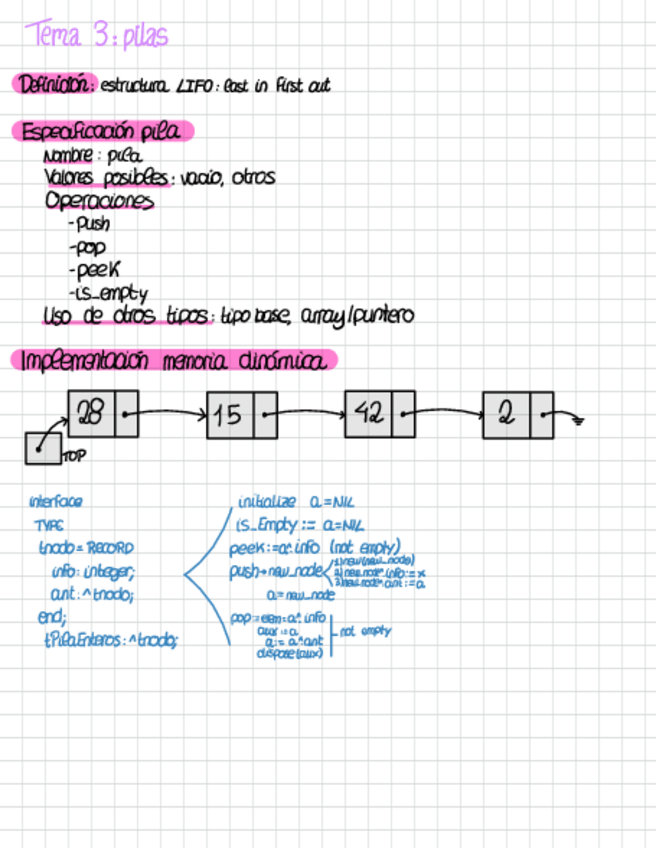 Tema 3: pilas
Definición: estructura LIFO: last in first out
Especificación pila
Nombre: pila
Valores posibles: vacío, otros
Operaciones
-push
-pop
-peek
-is_empty
Uso de otros tipos: tipo base, array/puntero
Implementación memoria dinámica
28 15 42 2
TOP
interface
TYPE
tnodo = RECORD
info: integer;
ant: ^tnodo;
end;
tPilaEnteros: ^tnodo;
initialize a=NIL
is_Empty := a=NIL
peek:=a^.info (not empty)
push→new_node
1)new(new_node)
2)new_node^.info:=x
3)new_node^.ant:=a
a:=new_node
pop:=elem:=a^.info
aux:=a
a:=a^.ant
dispose(aux)
not empty